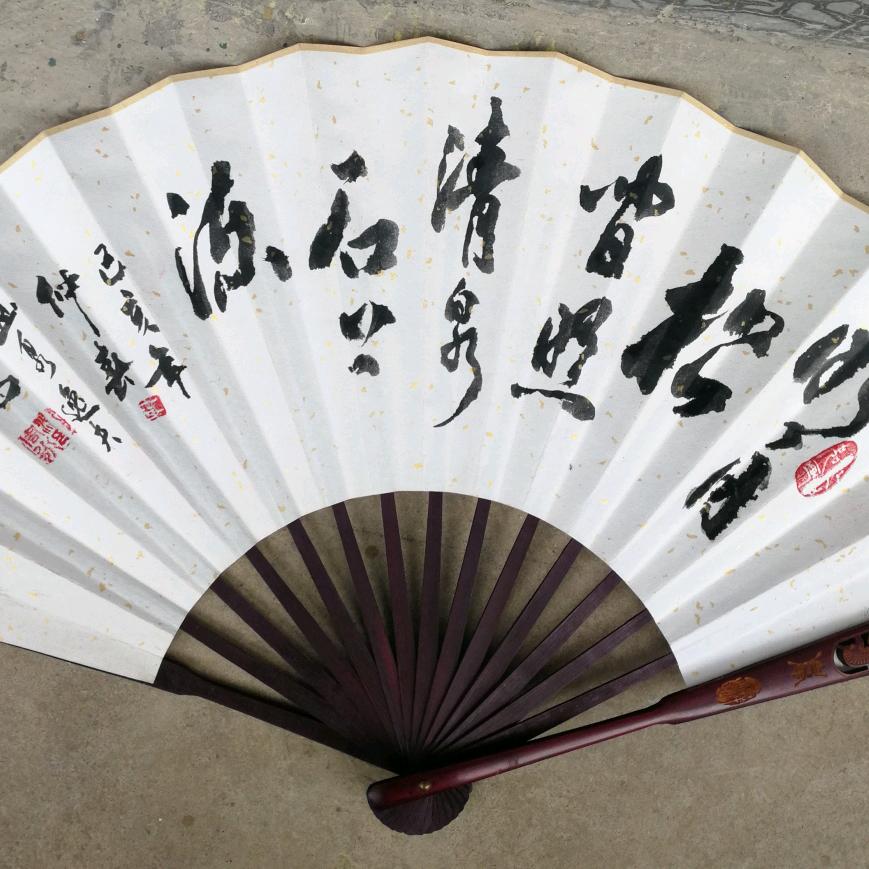 明月
松
間照
清泉
石上
流
己亥年
仲春